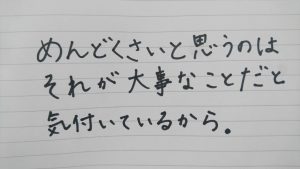 めんどくさいと思うのは
それが大事なことだと
気付いているから。